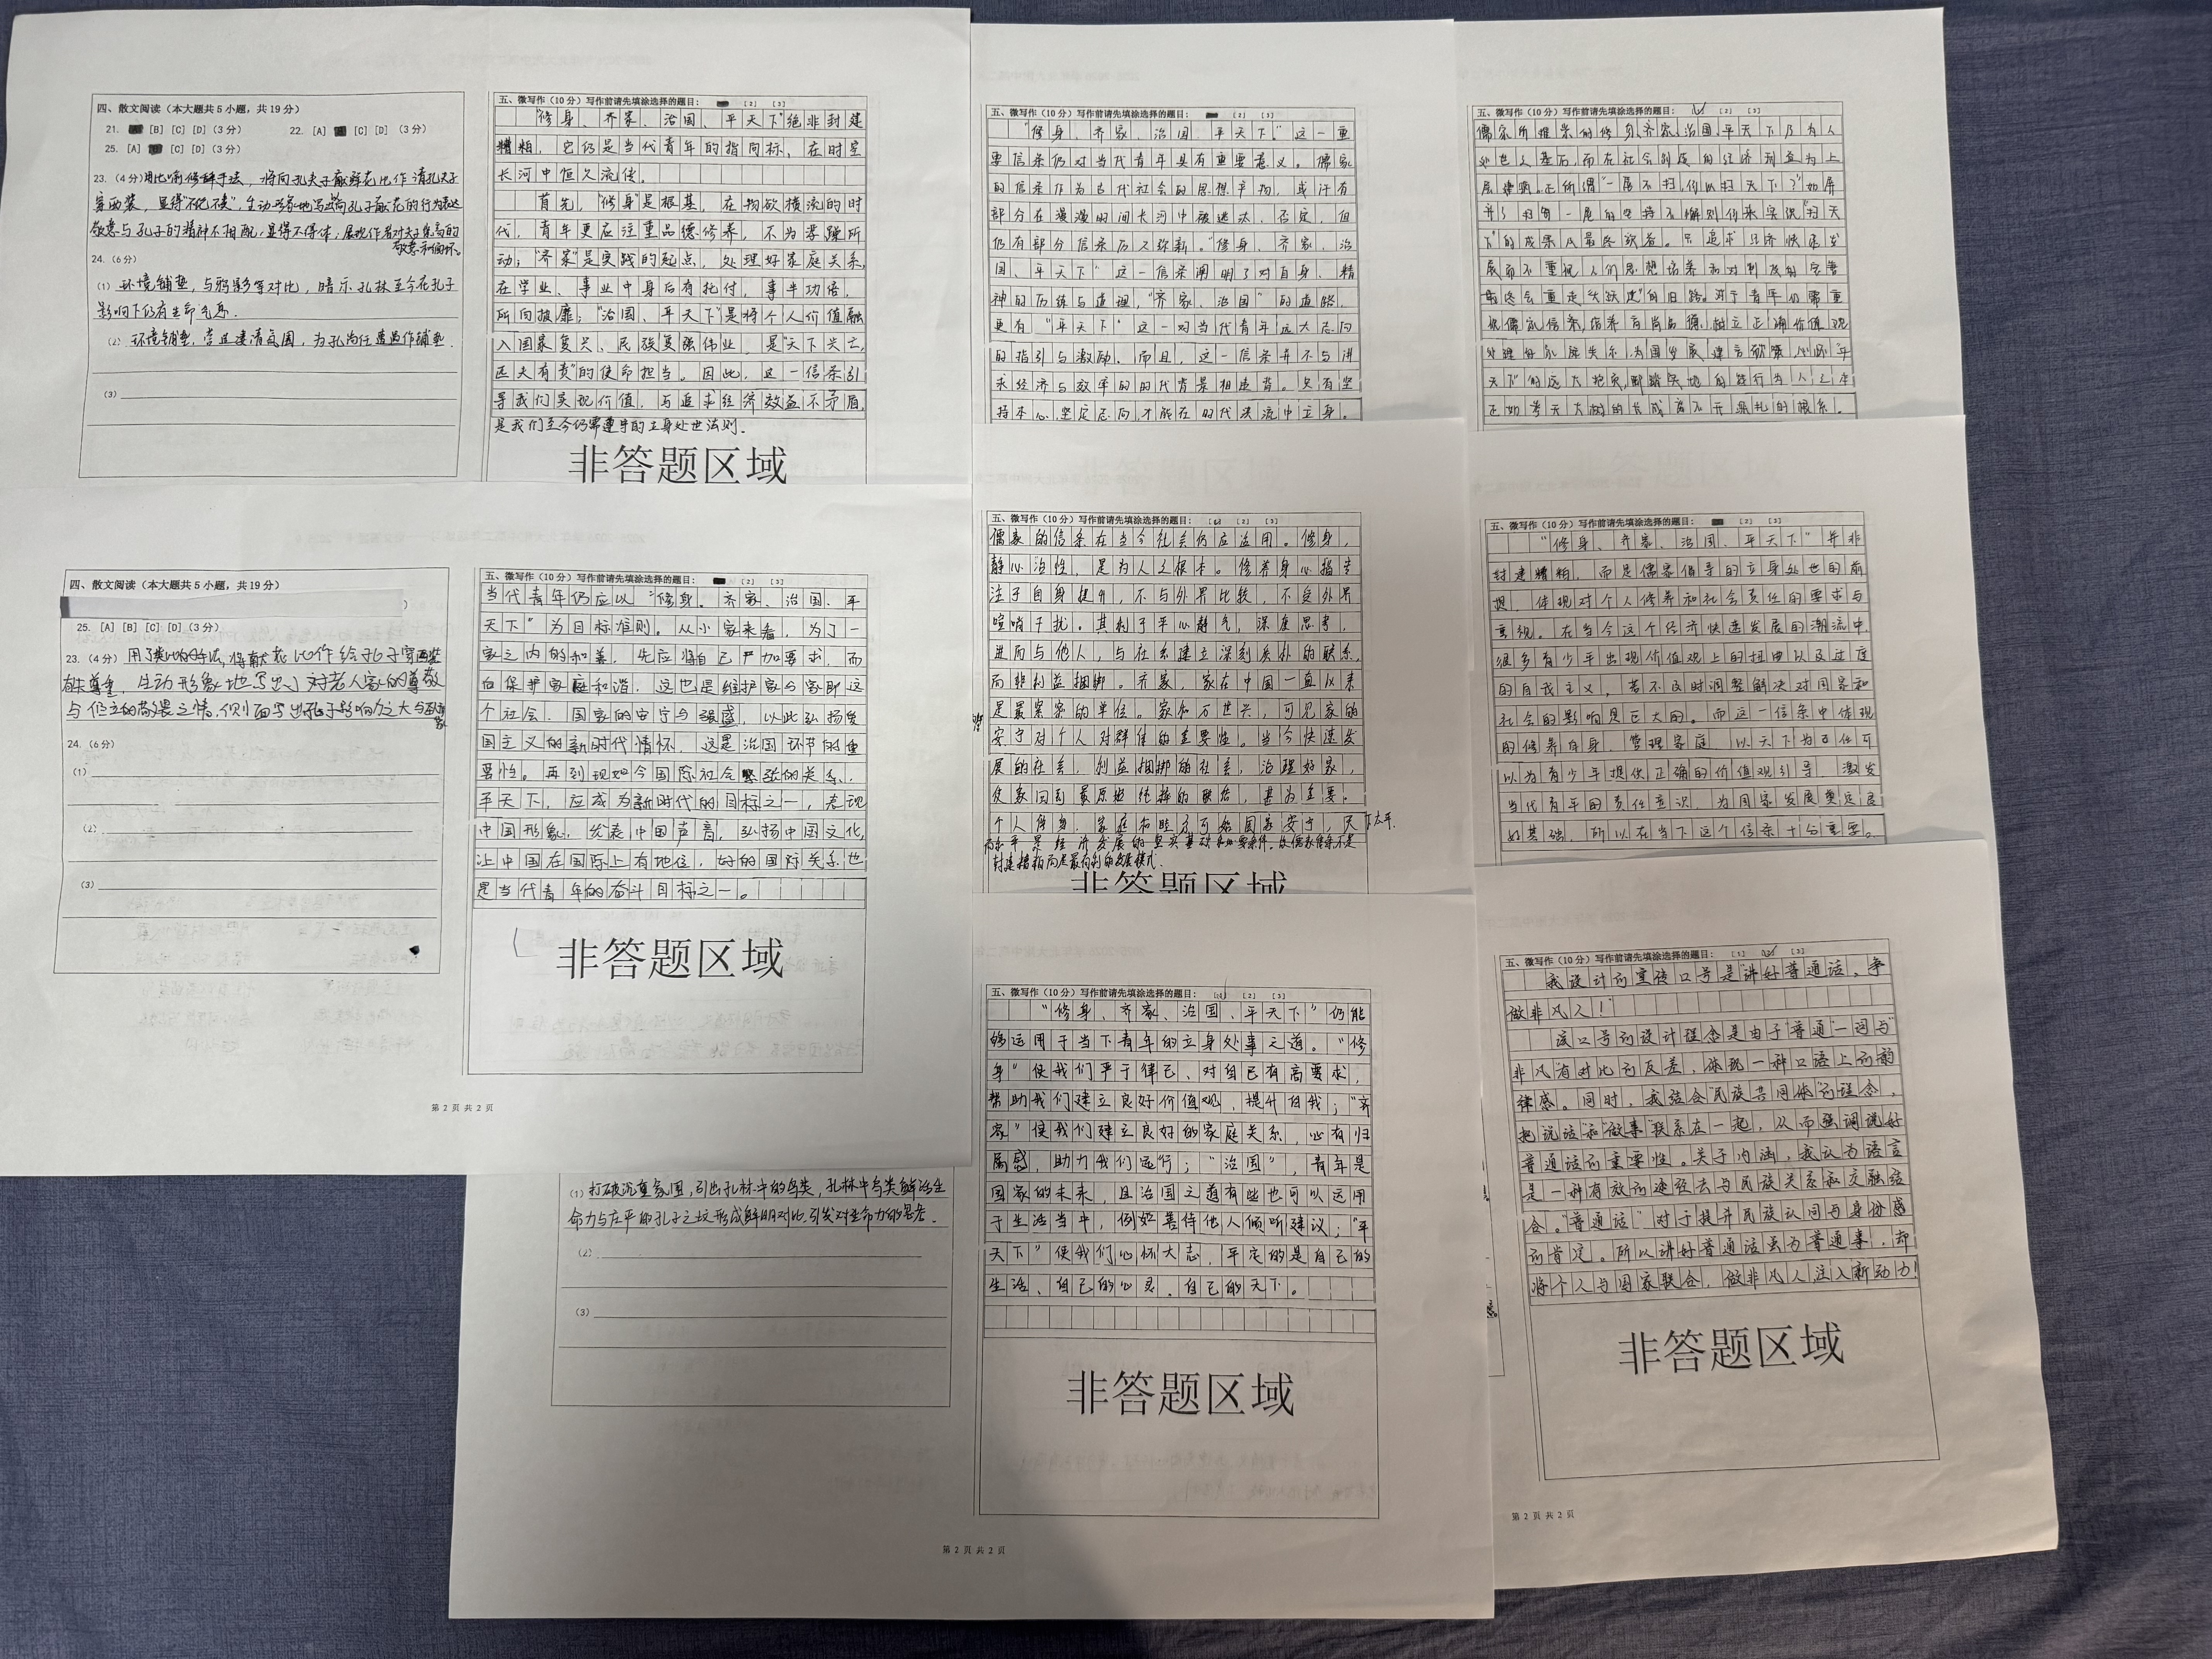 四、散文阅读（本大题共5小题，共19分）
21. [B] [C] [D]（3分） 22. [A] [C] [D]（3分）
25. [A] [C] [D]（3分）
23.（4分）用比喻修辞手法，将向孔夫子献鲜花比作请孔夫子
穿西装，显得"不伦不类"，生动形象地写出向孔子献花的行为表达
敬意与孔子的精神不相配，显得不得体，展现作者对夫子崇高的
敬意和缅怀。
24.（6分）
（1）环境铺垫，与鸦影等对比，暗示孔林至今在孔子
影响下仍有生命气息．
（2）环境铺垫，营造凄清氛围，为孔尚任遭遇作铺垫．
（3）
五、微写作（10分）写作前请先填涂选择的题目： [2] [3]
"修身、齐家、治国、平天下"绝非封建
糟粕，它仍是当代青年的指向标，在时空
长河中恒久流传。
首先，"修身"是根基，在物欲横流的时
代，青年更应注重品德修养，不为浮躁所
动；"齐家"是实践的起点，处理好家庭关系，
在学业、事业中身后有托付，事半功倍，
所向披靡；"治国、平天下"是将个人价值融
入国家复兴、民族复强伟业，是"天下兴亡，
匹夫有责"的使命担当。因此，这一信条引
导我们实现价值，与追求经济效益不矛盾，
是我们至今仍需遵守的立身处世法则．
非答题区域
五、微写作（10分）写作前请先填涂选择的题目： [2] [3]
"修身、齐家、治国、平天下"这一重
要信条仍对当代青年具有重要意义。儒家
的信条作为古代社会的思想产物，或许有
部分在漫漫时间长河中被逃汰、否定，但
仍有部分信条历久弥新。"修身、齐家、治
国、平天下"这一信条阐明了对自身、精
神的历练与道理，"齐家、治国"的道路，
更有"平天下"这一对当代青年远大志向
的指引与激励。而且，这一信条并不与讲
求经济与效率的时代背景相违背。只有坚
持本心、坚定志向，才能在时代洪流中立身。
五、微写作（10分）写作前请先填涂选择的题目： [2] [3]
儒家所推崇的修身、齐家、治国、平天下乃有人
展而不重视人们思想培养和对制度的完善
天下"的远大抱负，脚踏实地的践行为人之本
正如参天大树的长成离不开深扎的根系。
四、散文阅读（本大题共5小题，共19分）
25. [A] [B] [C] [D]（3分）
与伫立的敬畏之情，侧面写出孔子影响力之大与
24.（6分）
（1）
（2）
（3）
五、微写作（10分）写作前请先填涂选择的题目： [2] [3]
当代青年仍应以"修身、齐家、治国、平
天下"为目标准则。从小家来看，为了一
家之内的和善，先应将自己严加要求，而
后保护家庭和谐，这也是维护家家即这
个社会、国家的安宁与强盛，以此弘扬爱
国主义的新时代情怀，这是治国环节的重
要性。再到现如今国际社会紧张的关系，
平天下，应成为新时代的目标之一，表现
中国形象，发表中国声音，弘扬中国文化，
让中国在国际上有地位，好的国际关系也
是当代青年的奋斗目标之一。
非答题区域
第 2 页 共 2 页
五、微写作（10分）写作前请先填涂选择的题目： [2] [3]
儒家的信条在当今社会仍应适用。修身，
静心治性，是为人之根本。修养身心指专
注于自身提升，不与外界比较，不受外界
喧哨干扰。其利于平心静气，深度思考，
进而与他人，与社会建立深刻质朴的联系，
而非利益捆绑。齐家，家在中国一直以来
是最紧密的单位。家和万世兴，可见家的
安宁对个人对群体的重要性。当今快速发
展的社会，利益捆绑的社会，治理好家，
使家回到最原始纯粹的联结，甚为重要。
个人修身，家庭和睦方可始国家安宁，天下太平．
和平是经济发展的坚实基础和必要条件，故儒家信条不是
封建糟粕而是最有利的发展模式．
非答题区域
五、微写作（10分）写作前请先填涂选择的题目： [2] [3]
"修身、齐家、治国、平天下"并非
封建糟粕，而是儒家倡导的立身处世的前
提，体现对个人修养和社会责任的要求与
重视。在当今这个经济快速发展的潮流中，
很多青少年出现价值观上的扭曲以及过度
的自我主义，若不及时调整解决对国家和
社会的影响是巨大的。而这一信条中体现
的修养自身、管理家庭、以天下为己任可
以为青少年提供正确的价值观引导，激发
当代青年的责任意识，为国家发展奠定良
好基础，所以在当下这个信条十分重要。
（1）打破沉重氛围，引出孔林中的鸟类，孔林中鸟类鲜活生
命力与庄严的孔子之坟形成鲜明对比，引发对生命力的思考．
（2）
（3）
五、微写作（10分）写作前请先填涂选择的题目： [1] [2] [3]
"修身、齐家、治国、平天下"仍能
够运用于当下青年的立身处事之道。"修
身"使我们严于律己、对自己有高要求，
帮助我们建立良好价值观，提升自我；"齐
家"使我们建立良好的家庭关系，心有归
属感，助力我们远行；"治国"，青年是
国家的未来，且治国之道有些也可以运用
于生活当中，例如善待他人倾听建议；"平
天下"使我们心怀大志，平定的是自己的
生活、自己的心灵、自己的天下。
非答题区域
第 2 页 共 2 页
五、微写作（10分）写作前请先填涂选择的题目： [1] [2] [3]
我设计的宣传口号是"讲好普通话，争
做非凡人！"
该口号的设计理念是由于"普通"一词与"
非凡"有对比的反差，体现一种口语上的韵
律感。同时，我结合"民族共同体"的理念，
把"说话"和"做事"联系在一起，从而强调说好
普通话的重要性。关于内涵，我认为语言
是一种有效的途径去与民族关系和交融结
合。"普通话"对于提升民族认同与身份感
的肯定。所以讲好普通话虽为普通事，却
将个人与国家联合，做非凡人注入新动力！
非答题区域
第 2 页 共 2 页